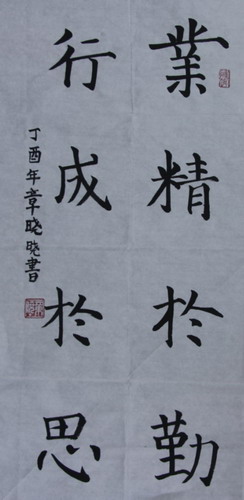 業精於勤
行成於思
丁酉年章晓晓書